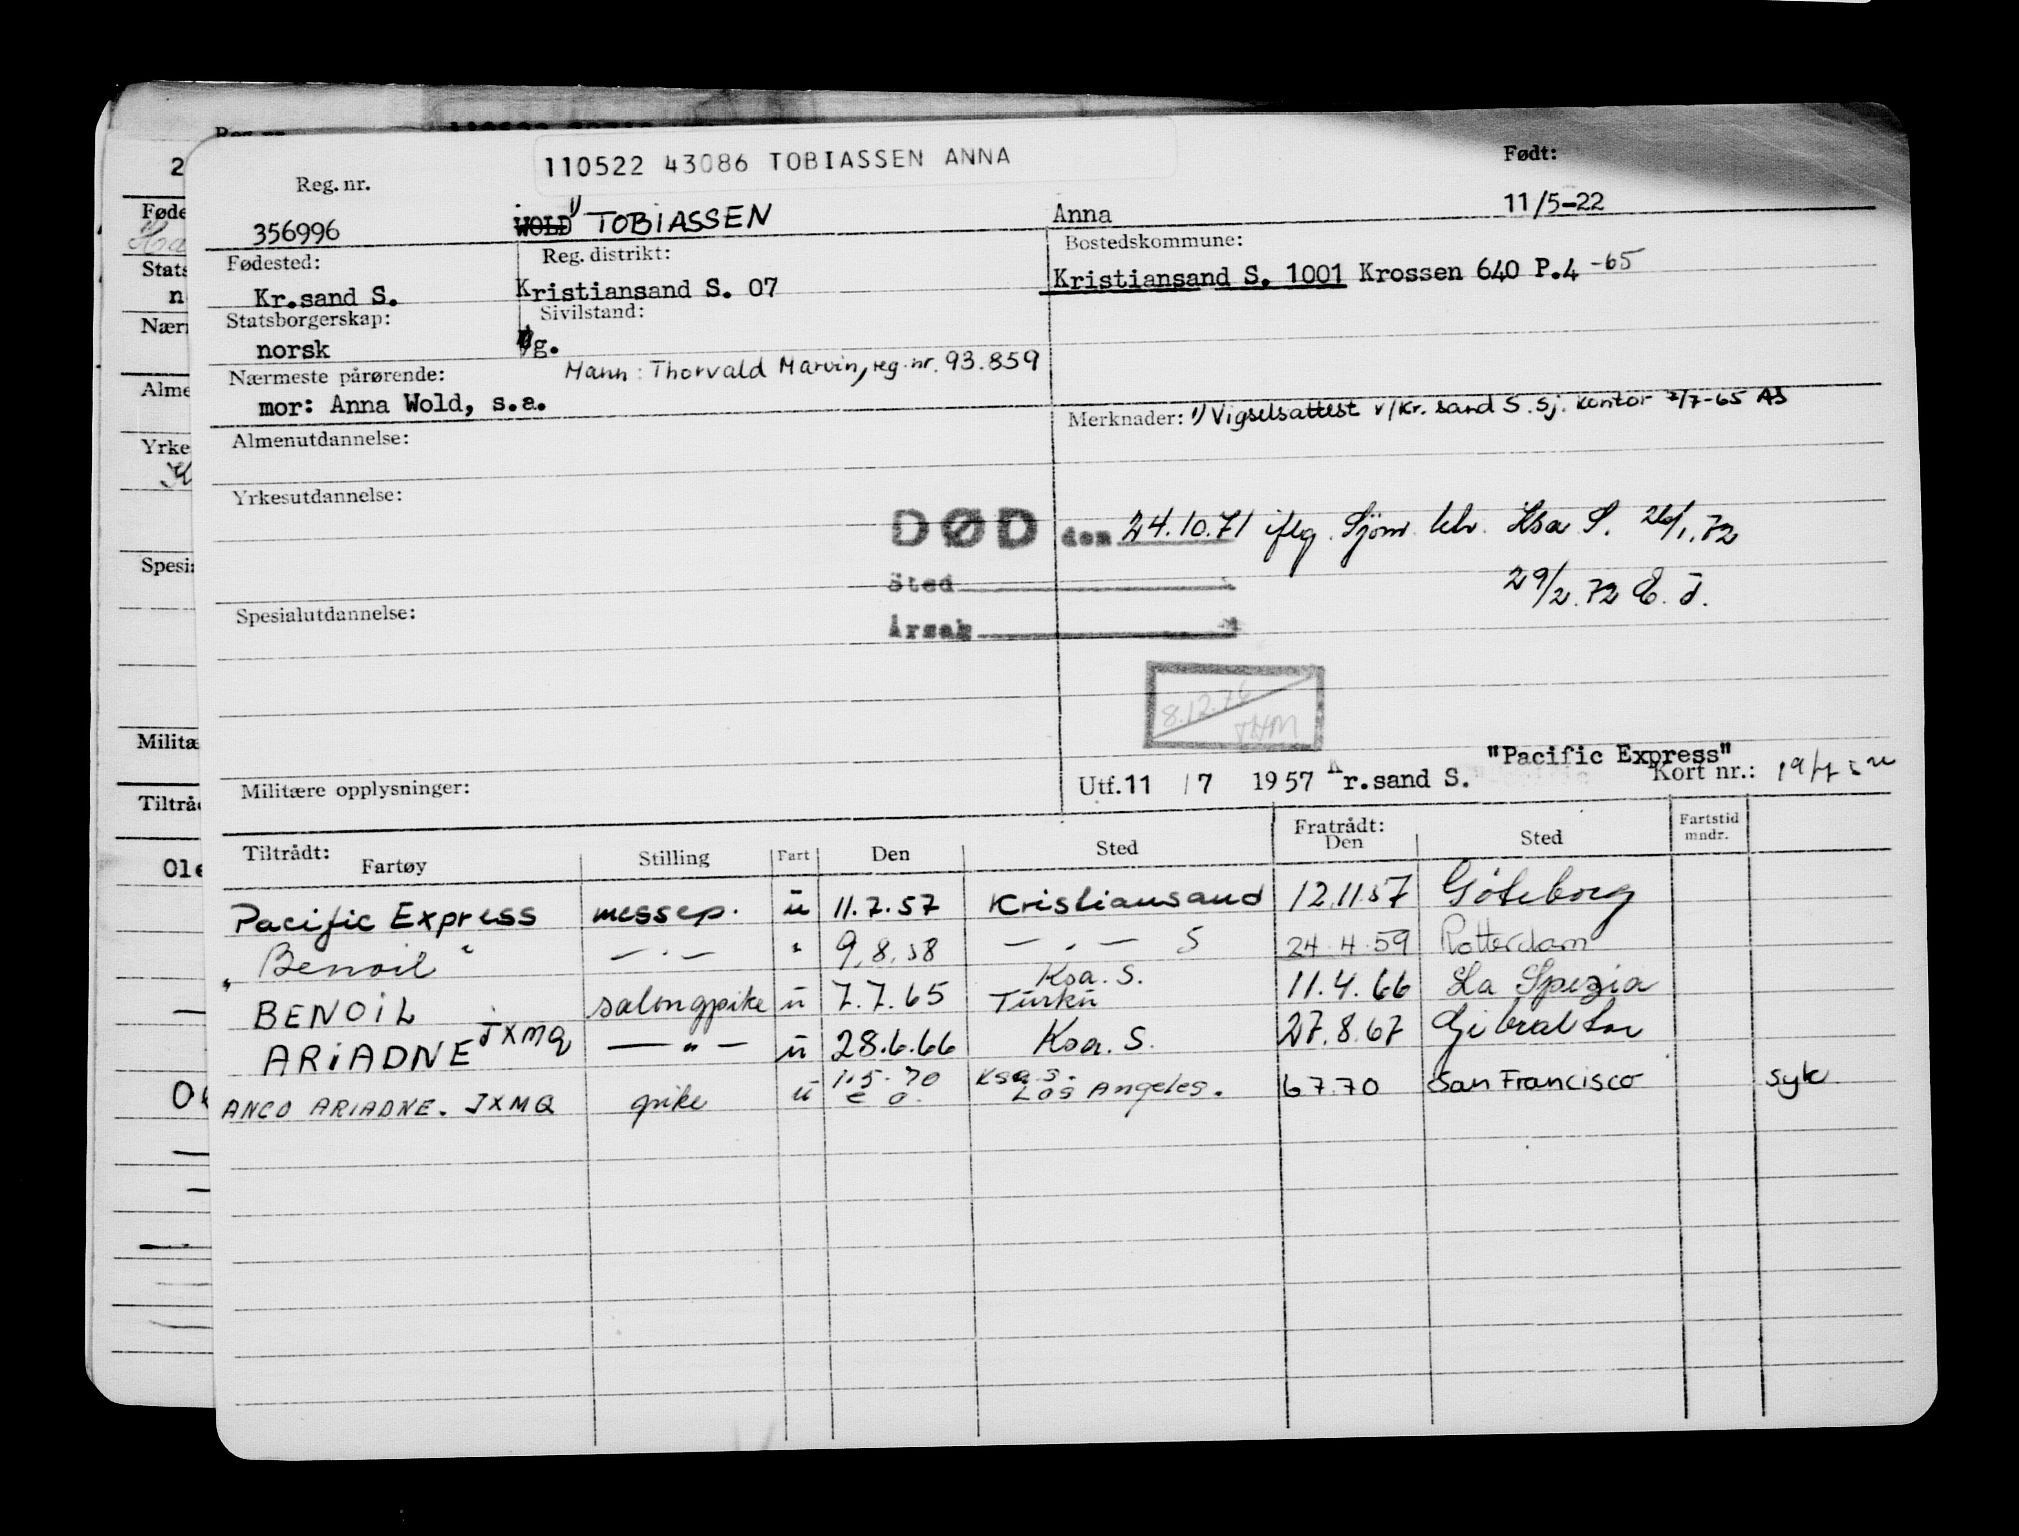 110522 43086 TOBIASSEN ANNA
Reg. nr.
Født:
356996
WOLD 1) TOBIASSEN
Anna
11/5-22
Fødested:
Reg. distrikt:
Bostedskommune:
Kr.sand S.
Kristiansand S. 07
Kristiansand S. 1001 Krossen 640 P.4 -65
Statsborgerskap:
Sivilstand:
norsk
g.
Nærmeste pårørende:
Mann: Thorvald Marvin, reg.nr. 93.859
mor: Anna Wold, s.a.
Merknader: 1) Vigselsattest v/Kr.sand S. Sj. kontor 2/7-65 AS
Almenutdannelse:
Yrkesutdannelse:
DØD den 24.10.71 iflg. Sjøm. Ksa S. 26/1.72
Sted
29/2.72 E. J.
Spesialutdannelse:
Årsak
8.12.76
Militære opplysninger:
"Pacific Express"
Utf. 11 / 7 1957 Kr.sand S.
Kort nr.:
Tiltrådt:
Fartøy
Stilling
Fart
Den
Sted
Fratrådt:
Den
Sted
Fartstid
mndr.
Pacific Express messep. u 11.7.57 Kristiansand 12.11.57 Göteborg
" Benoil " — . — " 9.8.58 — . — S 24.4.59 Rotterdam
BENOIL salongpike u 7.7.65 Ksa. S. Turku 11.4.66 La Spezia
ARIADNE JXMQ — " — u 28.6.66 Ksa. S. 27.8.67 Gibraltar
ANCO ARIADNE. JXMQ pike u 1.5.70 Ksa S. Los Angeles. 6 7.70 San Francisco syk
Føde
Stats
Nærm
Alme
Yrke
Spesi
Militæ
Tiltråd
Ole